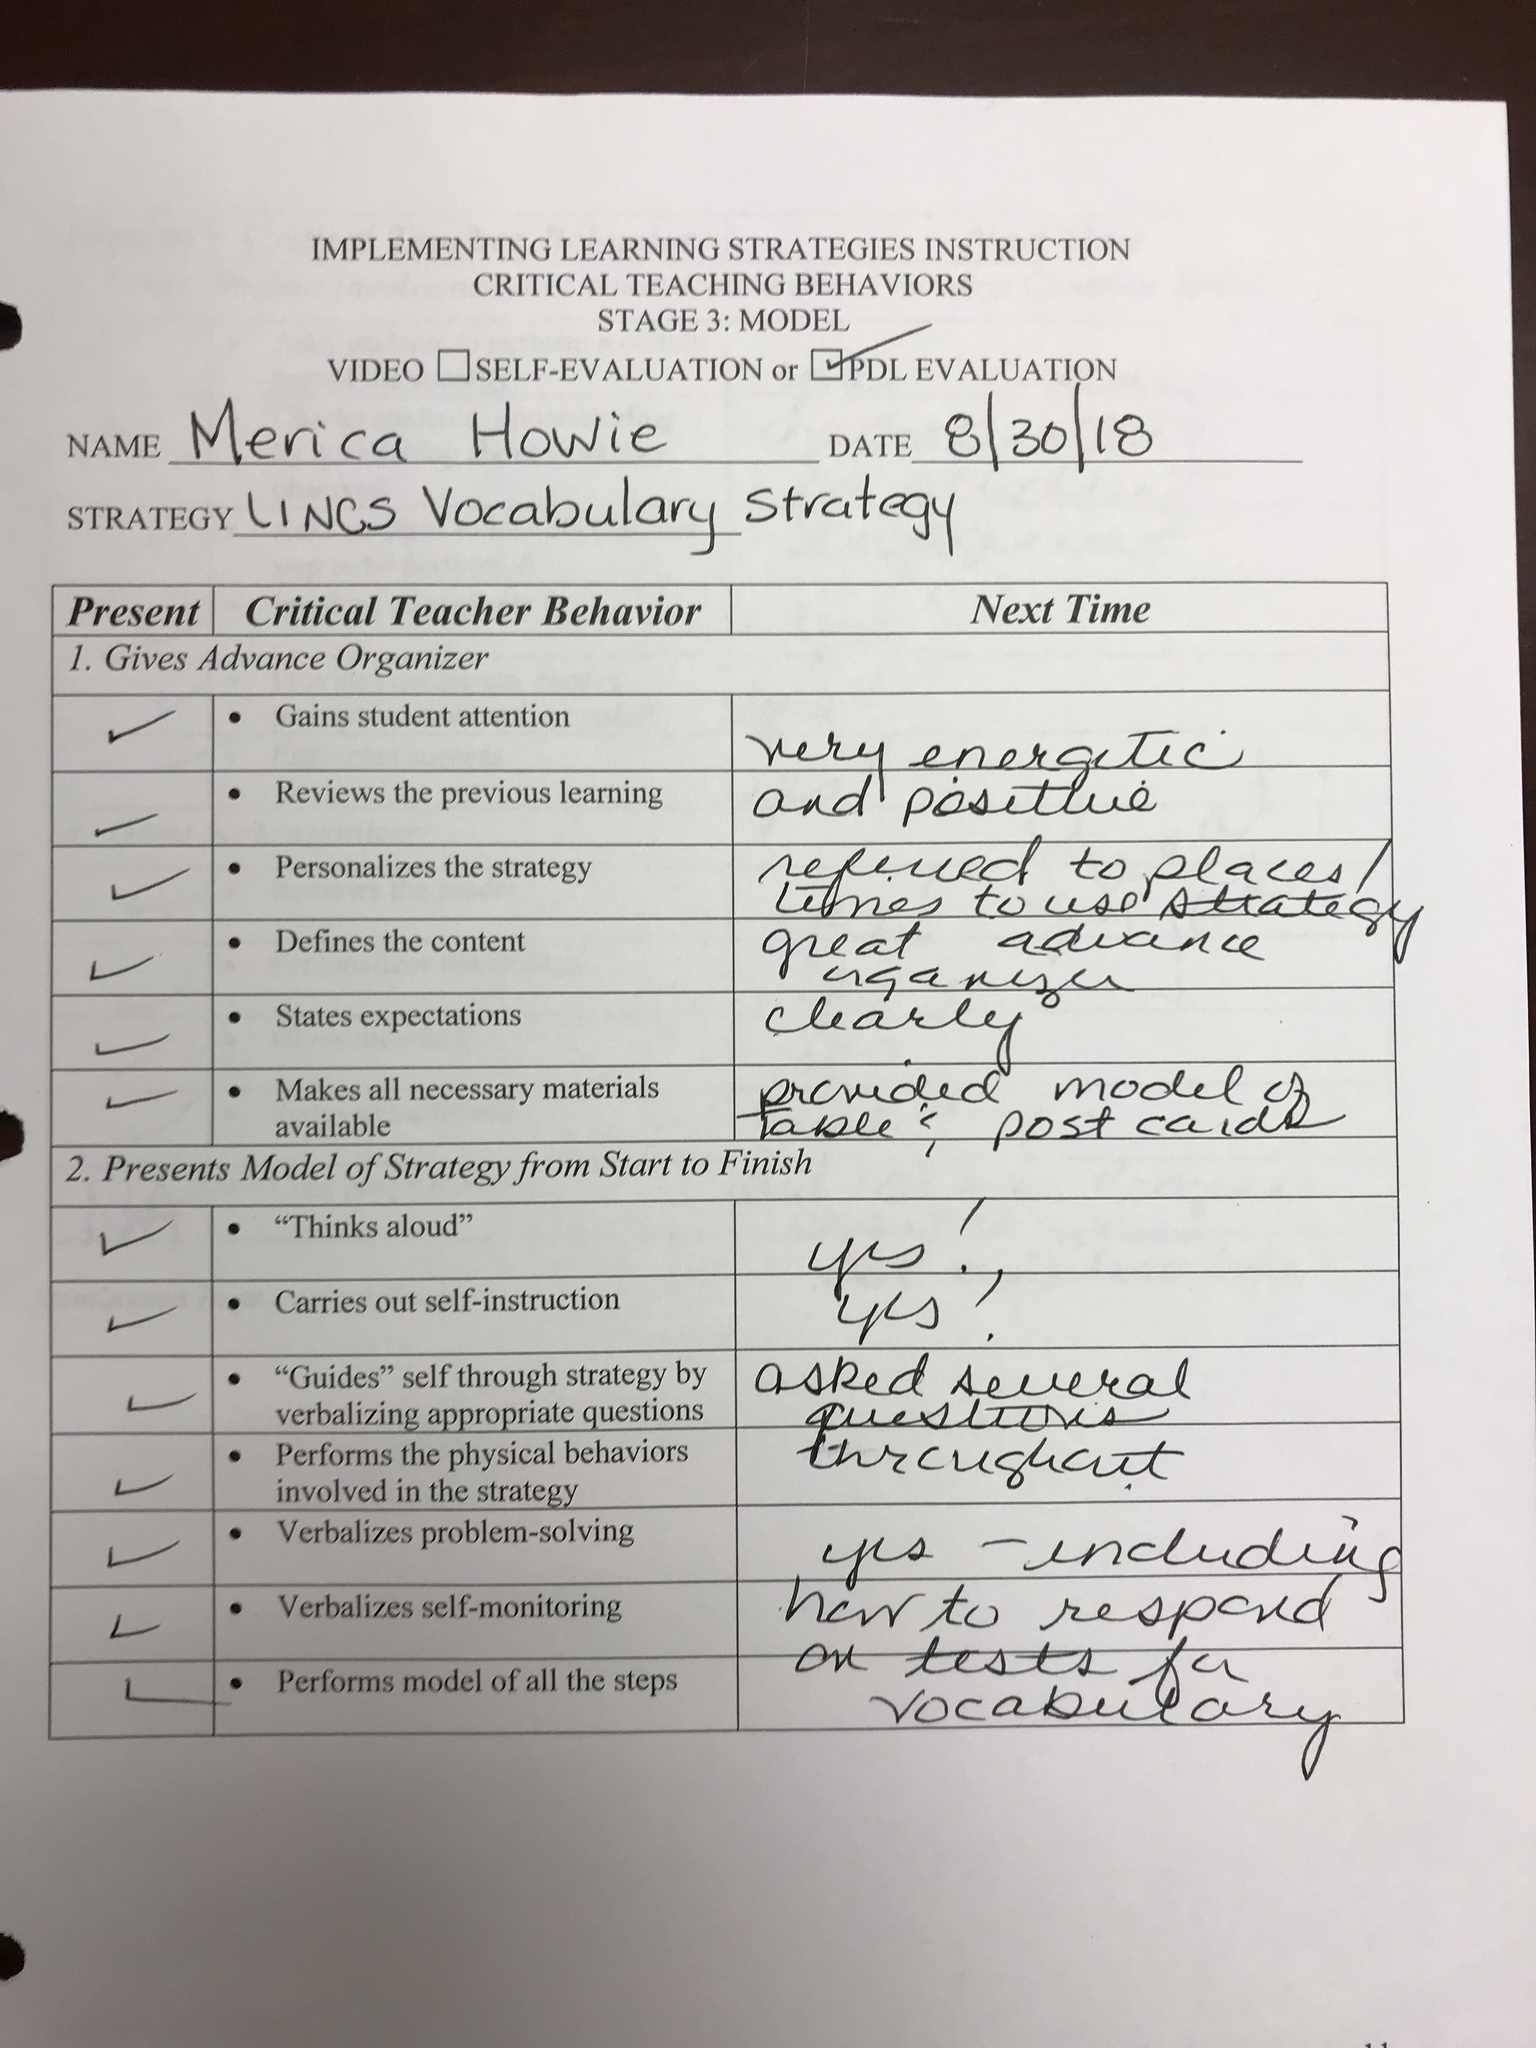 IMPLEMENTING LEARNING STRATEGIES INSTRUCTION
CRITICAL TEACHING BEHAVIORS
STAGE 3: MODEL
VIDEO ☐ SELF-EVALUATION or ☑ PDL EVALUATION
NAME Merica Howie DATE 8/30/18
STRATEGY LINCS Vocabulary Strategy
Present Critical Teacher Behavior Next Time
1. Gives Advance Organizer
✓ • Gains student attention very energetic
✓ • Reviews the previous learning and positive
✓ • Personalizes the strategy referred to places/
times to use strategy
✓ • Defines the content great advance
organizer
✓ • States expectations clearly
✓ • Makes all necessary materials provided model of
available table & post cards
2. Presents Model of Strategy from Start to Finish
✓ • “Thinks aloud” yes!
✓ • Carries out self-instruction yes!
✓ • “Guides” self through strategy by asked several
verbalizing appropriate questions questions
✓ • Performs the physical behaviors throughout
involved in the strategy
✓ • Verbalizes problem-solving yes - including
✓ • Verbalizes self-monitoring how to respond
on tests for
✓ • Performs model of all the steps vocabulary